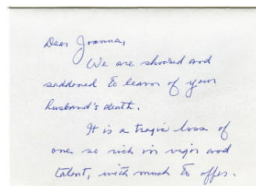 Dear Joanna,
We are shocked and
saddened to learn of your
husband's death.
It is a tragic loss of
one so rich in vigor and
talent, with much to offer.